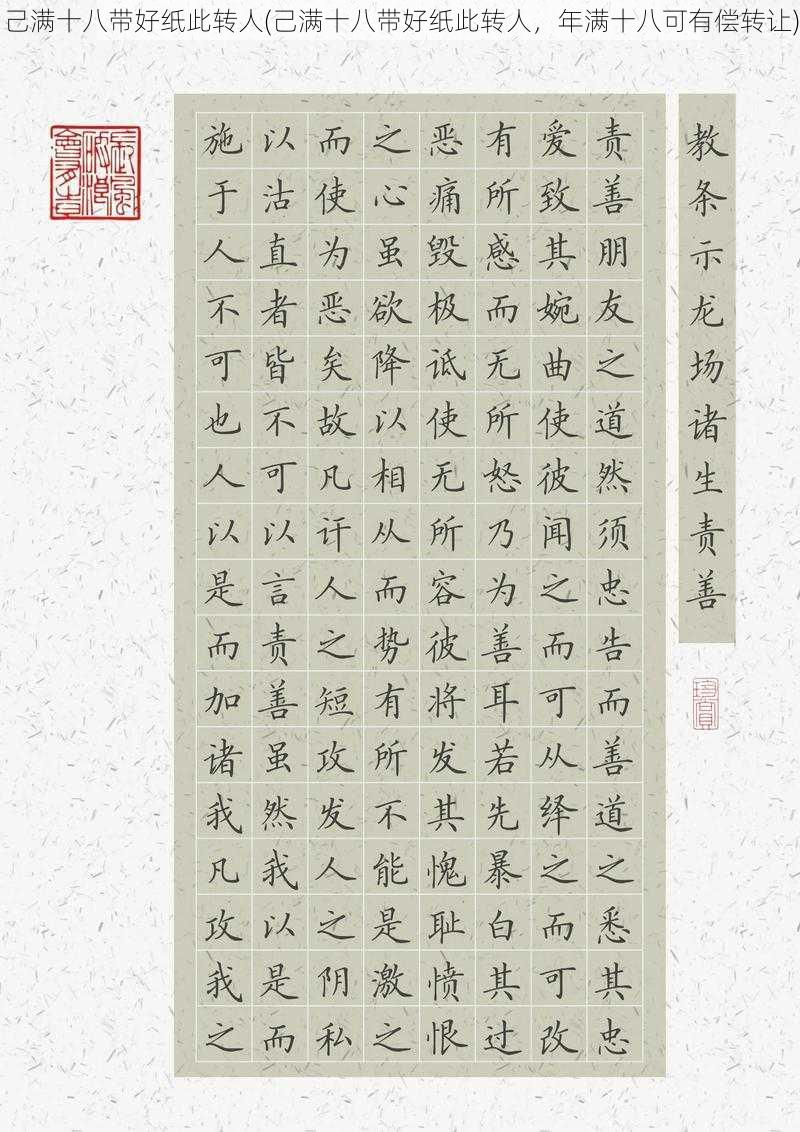 己满十八带好纸此转人(己满十八带好纸此转人，年满十八可有偿转让)
教条示龙场诸生责善
责善朋友之道然须忠告而善道之悉其忠
爱致其婉曲使彼闻之而可从绎之而可改
有所感而无所怒乃为善耳若先暴白其过
恶痛毁极诋使无所容彼将发其愧耻愤恨
之心虽欲降以相从而势有所不能是激之
而使为恶矣故凡讦人之短攻发人之阴私
以沽直者皆不可以言责善虽然我以是而
施于人不可也人以是而加诸我凡攻我之